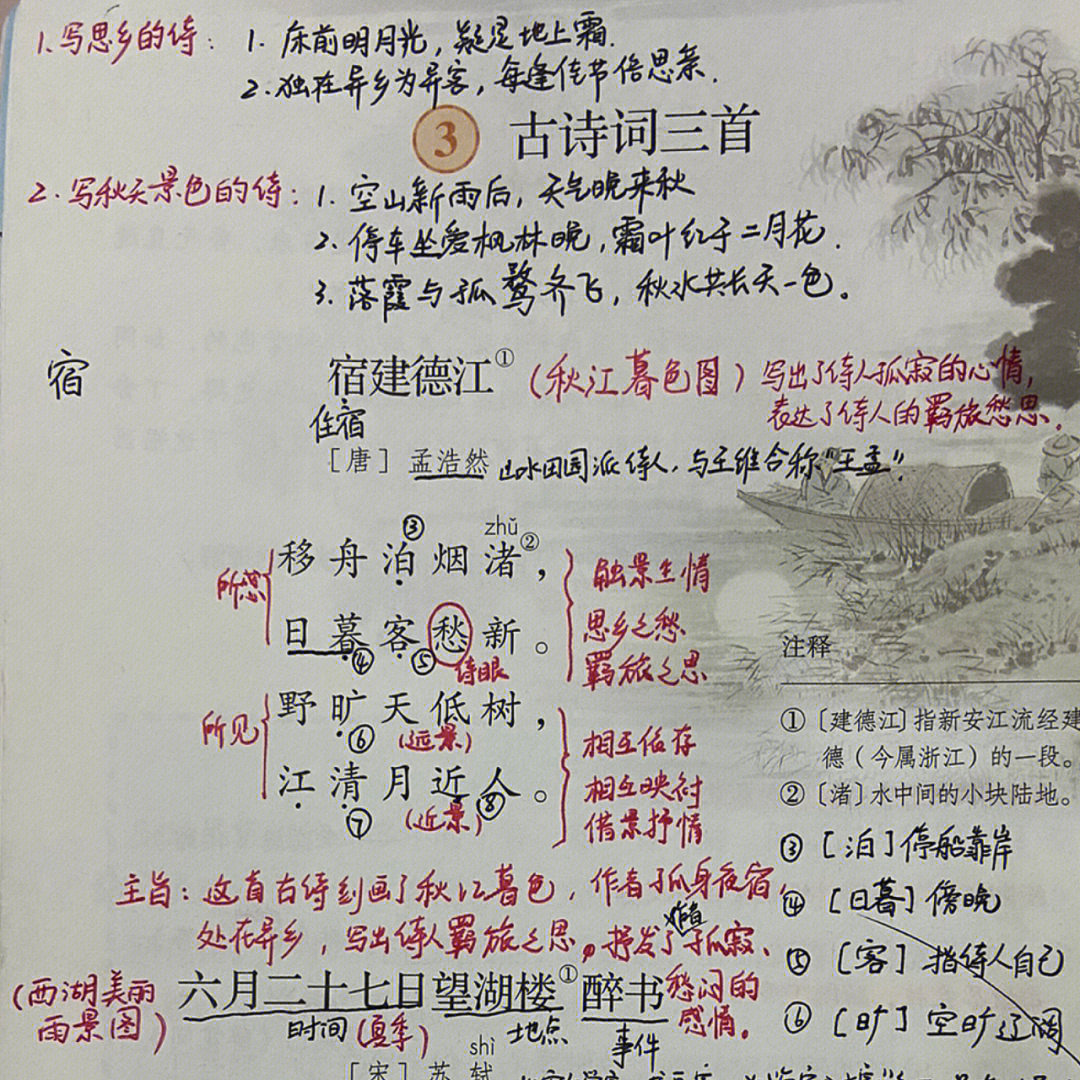 1.写思乡的诗：1. 床前明月光，疑是地上霜.
2.独在异乡为异客，每逢佳节倍思亲.
3 古诗词三首
2.写秋天景色的诗：1. 空山新雨后，天气晚来秋
2. 停车坐爱枫林晚，霜叶红于二月花.
3. 落霞与孤鹜齐飞，秋水共长天一色。
宿 宿建德江① (秋江暮色图) 写出了诗人孤寂的心情,
表达了诗人的羁旅愁思.
住宿
［唐］孟浩然 山水田园派诗人，与王维合称"王孟".
zhǔ
移舟泊③烟渚②，
日暮④客⑤愁新。
诗眼
所想
融景生情
思乡之愁
羁旅之思
野旷⑥天低树，
(远景)
江清⑦月近人⑧。
(近景)
所见
相互依存
相互映衬
借景抒情
注释
①［建德江］指新安江流经建
德（今属浙江）的一段。
②［渚］水中间的小块陆地。
③［泊］停船靠岸
④［日暮］傍晚
⑤［客］指诗人自己
⑥［旷］空旷辽阔
主旨：这首古诗刻画了秋江暮色，作者孤身夜宿,
处在异乡，写出诗人羁旅之思。抒发了孤寂、
愁闷的
感情。
(西湖美丽
雨景图)
六月二十七日望湖楼①醉书
时间 (夏季) 地点 事件
shì
［宋］苏轼